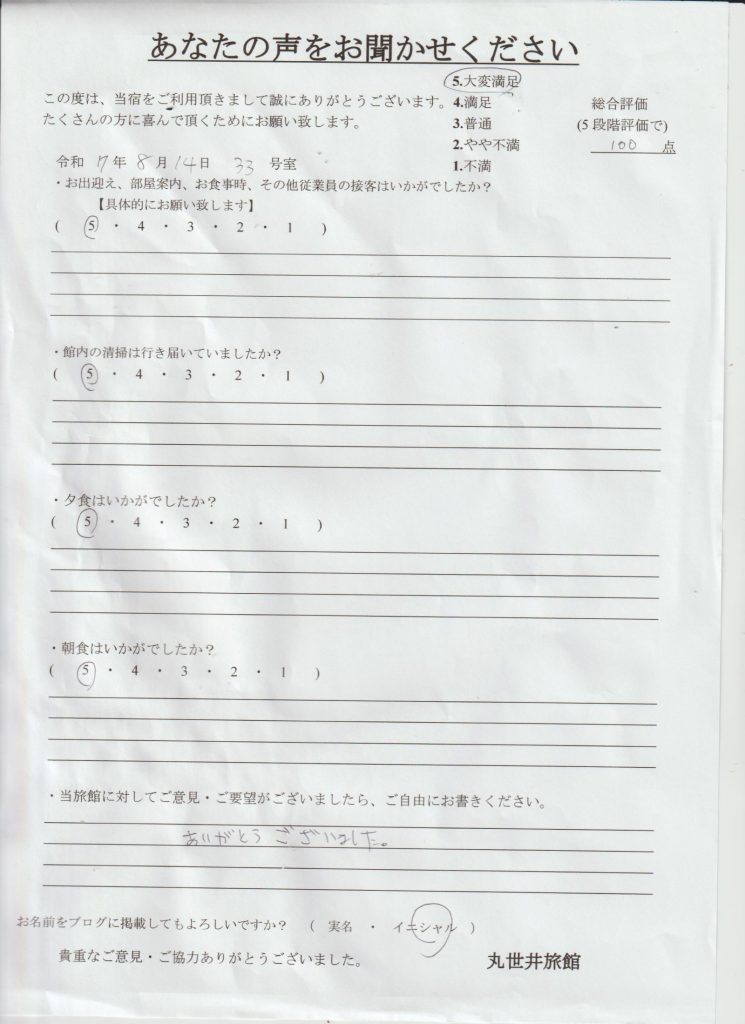 あなたの声をお聞かせください
この度は、当宿をご利用頂きまして誠にありがとうございます。
たくさんの方に喜んで頂くためにお願い致します。
5.大変満足
4.満足
3.普通
2.やや不満
1.不満
総合評価
(5段階評価で)
100 点
令和 7年 8月 14日 33 号室
・お出迎え、部屋案内、お食事時、その他従業員の接客はいかがでしたか？
【具体的にお願い致します】
( 5 ・ 4 ・ 3 ・ 2 ・ 1 )
・館内の清掃は行き届いていましたか？
( 5 ・ 4 ・ 3 ・ 2 ・ 1 )
・夕食はいかがでしたか？
( 5 ・ 4 ・ 3 ・ 2 ・ 1 )
・朝食はいかがでしたか？
( 5 ・ 4 ・ 3 ・ 2 ・ 1 )
・当旅館に対してご意見・ご要望がございましたら、ご自由にお書きください。
ありがとうございました。
お名前をブログに掲載してもよろしいですか？ ( 実名 ・ イニシャル )
貴重なご意見・ご協力ありがとうございました。
丸世井旅館